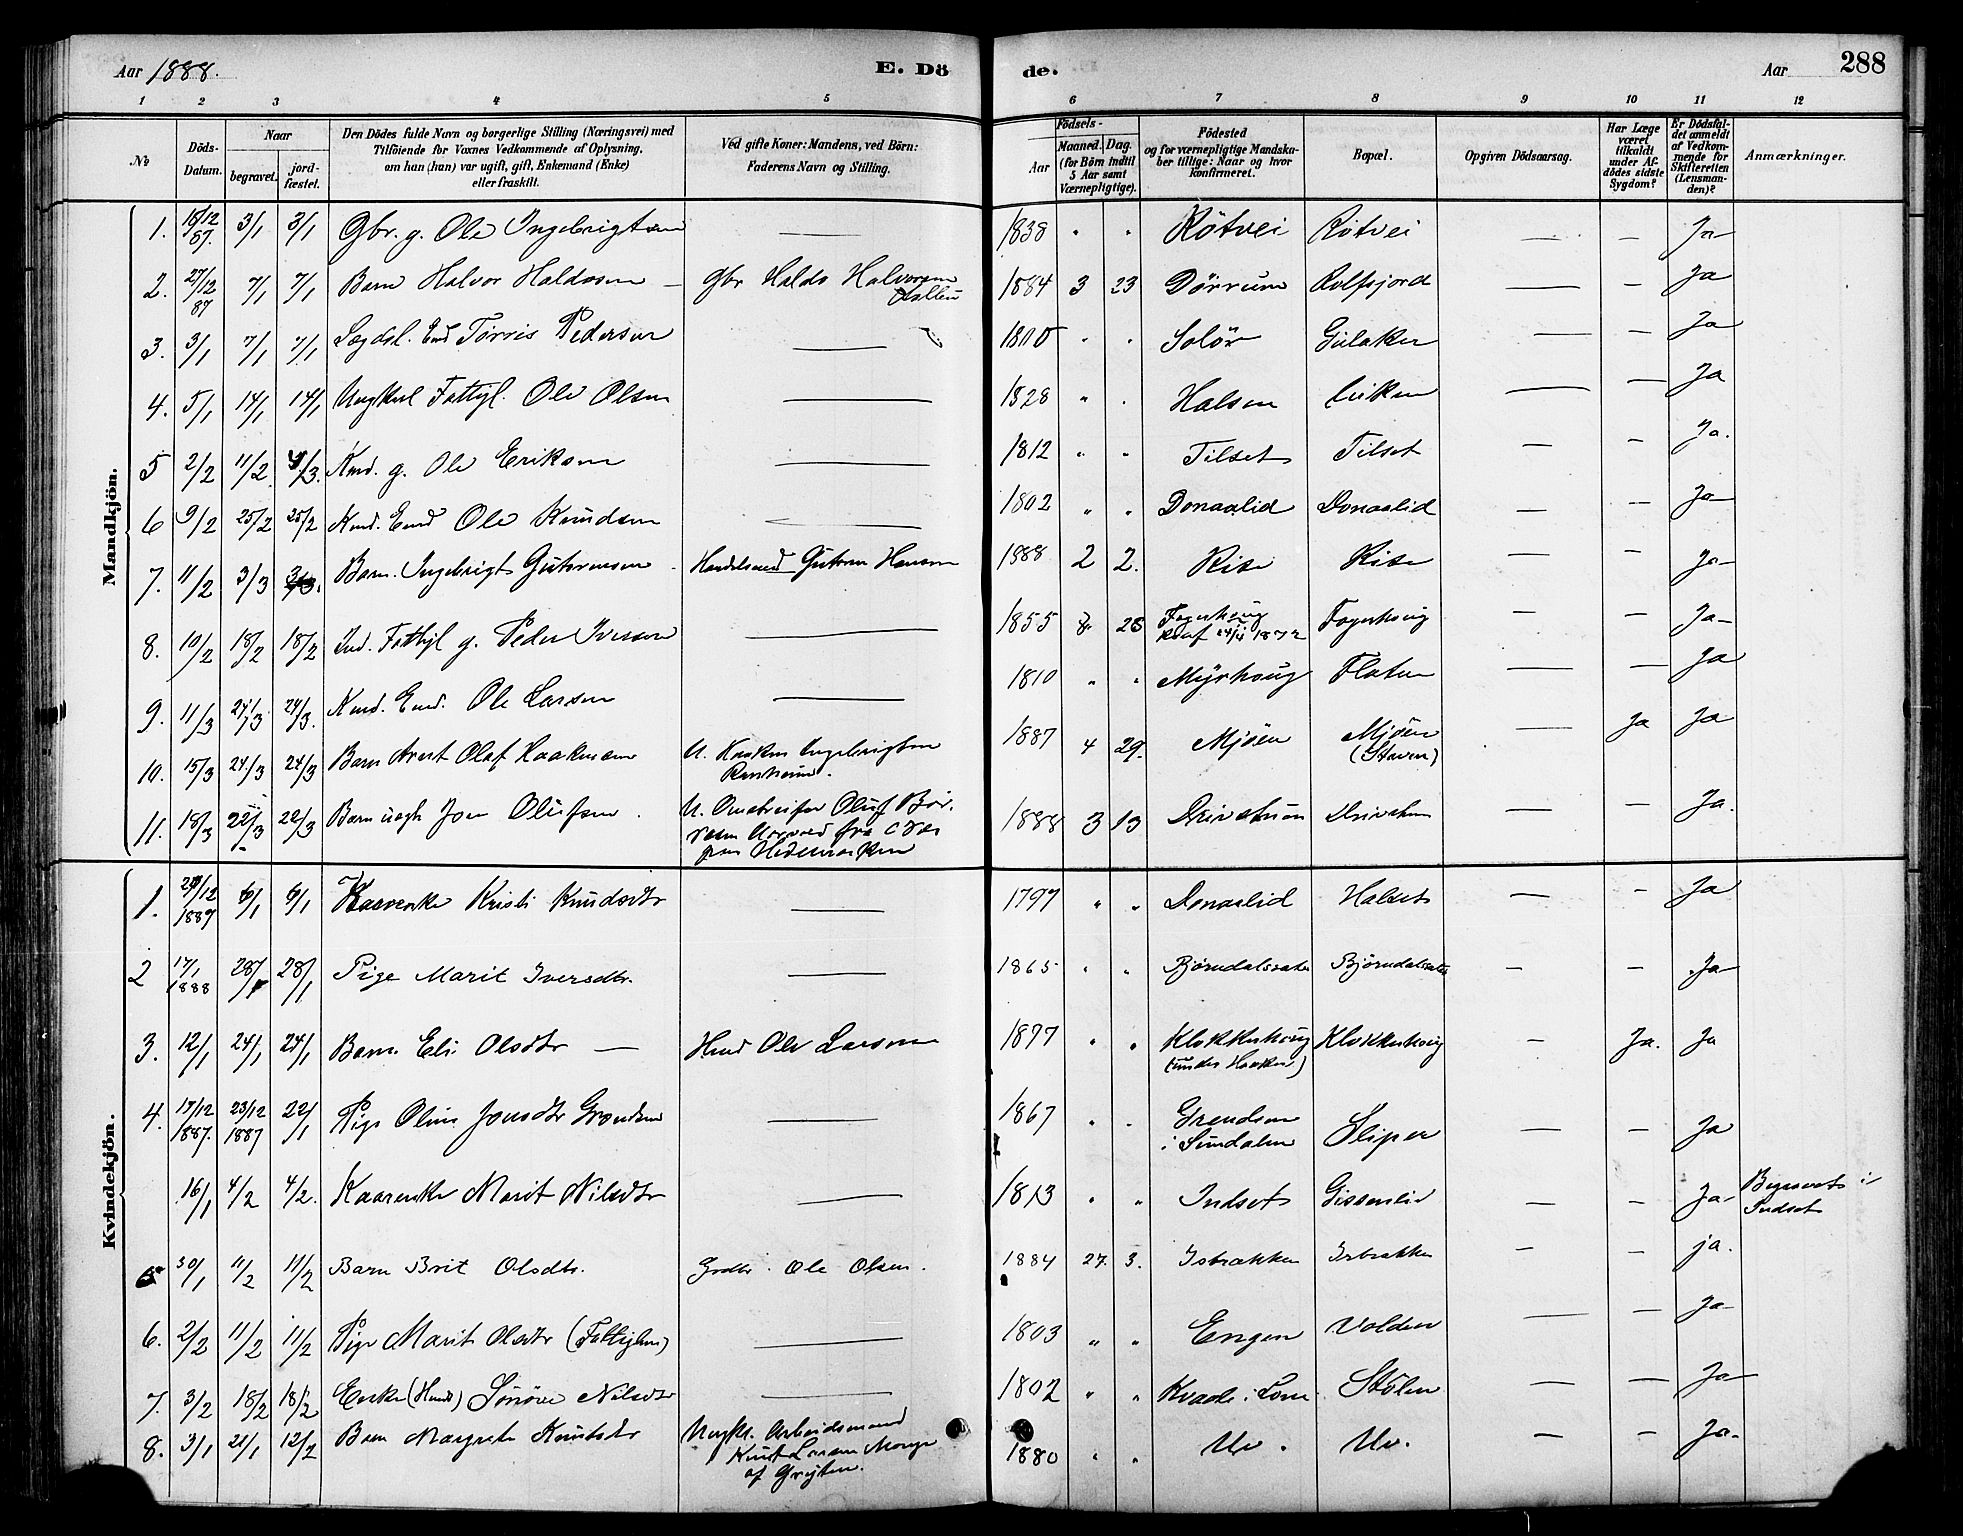 Aar 1888.
E. Dö
de.
Aar
288
1 2 3 4 5 6 7 8 9 10 11 12
No
Döds-Datum.
Naar
begravet.
jord-fæstet.
Den Dödes fulde Navn og borgerlige Stilling (Næringsvei) med
Tilföiende for Voxnes Vedkommende af Oplysning,
om han (hun) var ugift, gift, Enkemand (Enke)
eller fraskilt.
Ved gifte Koner: Mandens, ved Börn:
Faderens Navn og Stilling.
Födsels-
Aar
Maaned. Dag.
(for Börn indtil
5 Aar samt
Værnepligtige).
Födested
og for værnepligtige Mandska-
ber tillige: Naar og hvor
konfirmeret.
Bopæl.
Opgiven Dödsaarsag.
Har Læge
været
tilkaldt
under Af-
dödes sidste
Sygdom?
Er Dödsfal-
det anmeldt
af Vedkom-
mende for
Skifteretten
(Lensman-
den)?
Anmærkninger.
Mandkjön.
1. 18/12 87. 3/1 3/1 Gbr. g. Ole Ingebrigtsen — 1838 " " Rötvei Rötvei — — Ja
2. 27/12 87 7/1 7/1 Barn Halvor Haldosen — Gbr Haldo Halvorsen 1884 3 23 Dörrum Rolfsjord — — Ja
3. 3/1 7/1 7/1 Lægdsl. Emd Torris Pedersen — 1810 " " Solör Gulaker — — Ja
4. 5/1 14/1 14/1 Ungkarl Fattigl. Ole Olsen — 1828 " " Halsen — — Ja
5 2/2 11/2 4/3 Kmd. g. Ole Eriksen — 1812 " " Tilset Tilset — — Ja.
6 9/2 25/2 25/2 Kmd. Emd Ole Knudsen — 1802 " " Donaalid Donaalid — — Ja
7. 11/2 3/3 3/3. Barn. Ingebrigt Guttormsen Handelsmd Guttorm Hansen 1888 2 2. Rise Rise — — Ja
8. 10/2 18/2 18/2 Ind. Fattigl g. Peder Iversen — 1855 8 28 Fagerhoug
Konf 1872 Fagerhoug — — Ja
9. 11/3 24/3 24/3. Kmd. Emd. Ole Larsen — 1810 " " Myrhoug Flaten — — Ja
10. 15/3 24/3 24/3 Barn Arnt Olaf Haakensen U. Haaken Ingebrigtsen
Rensheim. 1887 4 29. Mjöen Mjöen
(Staven) — Ja Ja
11. 18/3 22/3 22/3 Barn uægt Jon Olufsen. 1888 3 13 Drivstuen Drivstuen Ja.
Hedemarken
Kvindekjön.
1. 29/12 1887 6/1 6/1 Kaarenke Kristi Knudsdtr — 1797 " " Donaalid Halset — — Ja
2 17/1 1888 28/1 28/1 Pige Marit Iversdtr. — 1865 " " Björndalssæter Björndalssæter — — Ja
3. 12/1 24/1 24/1 Barn. Eli Olsdtr — Hmd Ole Larsen 1877 " " Klokkerhoug
(under Haaker) Klokkerhoug — Ja. Ja
4. 17/12 1887. 23/12 1887 22/1 Pige Oline Jonsdtr Grendsen — 1867 " " Grendsen
i Sundalen Sliper — — Ja
16/1 4/2 4/2. Kaarenke Marit Nilsdtr — 1813 " " Indset Gissenlid — — Ja Begravet i
Indset
5 30/1 11/2 11/2 Barn Brit Olsdtr. Ole Olsen. 1884 27. 3. Isbrækken Isbrækken — — ja.
6. 2/2 11/2 11/2 Pige Marit Olsdtr (Fattiglem) — 1803 " " Engen Volden — — Ja
7. 3/2 18/2 18/2 Enke (Hmd) Sönöve Nilsdtr — 1802 " " i Lom Stölen — — Ja
8. 3/1 21/1 12/2 Barn Margrete Knudsdtr Ungkl. Arbeidsmand
Knut Larsen
af Grytten. 1880 " " Uv. Uv. — — Ja.